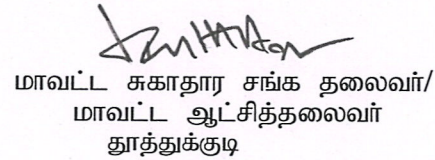 மாவட்ட சுகாதார சங்க தலைவர்/
மாவட்ட ஆட்சித்தலைவர்
தூத்துக்குடி